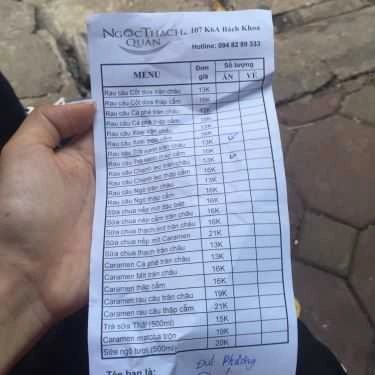 NGỌCTHẠCH QUÁN
107 K6A Bách Khoa
Hotline: 094 82 89 333
MENU Đơn giá Số lượng
ĂN VỀ
Rau câu Cốt dừa trân châu 13K
Rau câu Cốt dừa thập cẩm 16K
Rau câu Cà phê trân châu 13K
Rau câu Cà phê thập cẩm 16K
Rau câu trân châu
Rau câu thập cẩm 16K
Rau câu trân châu 13K
Rau câu thập cẩm 16K
Rau câu Chanh leo trân châu 13K
Rau câu Chanh leo thập cẩm 16K
Rau câu Ngô trân châu 13K
Rau câu Ngô thập cẩm 16K
Sữa chua nếp mít đặc biệt 16K
Sữa chua nếp cẩm trân châu 16K
Sữa chua thạch lmit trân châu 16K
Sữa chua nếp mít Caramen 21K
Sữa chua thạch trân châu 13K
Caramen Cà phê trân châu 13K
Caramen Mít trân châu 16K
Caramen thập cẩm 16K
Caramen rau câu trân châu 19K
Caramen rau câu thập cẩm 21K
Trà sữa Thái (500ml) 15K
Caramen matcha trộn 19K
Sữa ngô tươi (500ml) 20K
Tên bạn là: Đức Phương